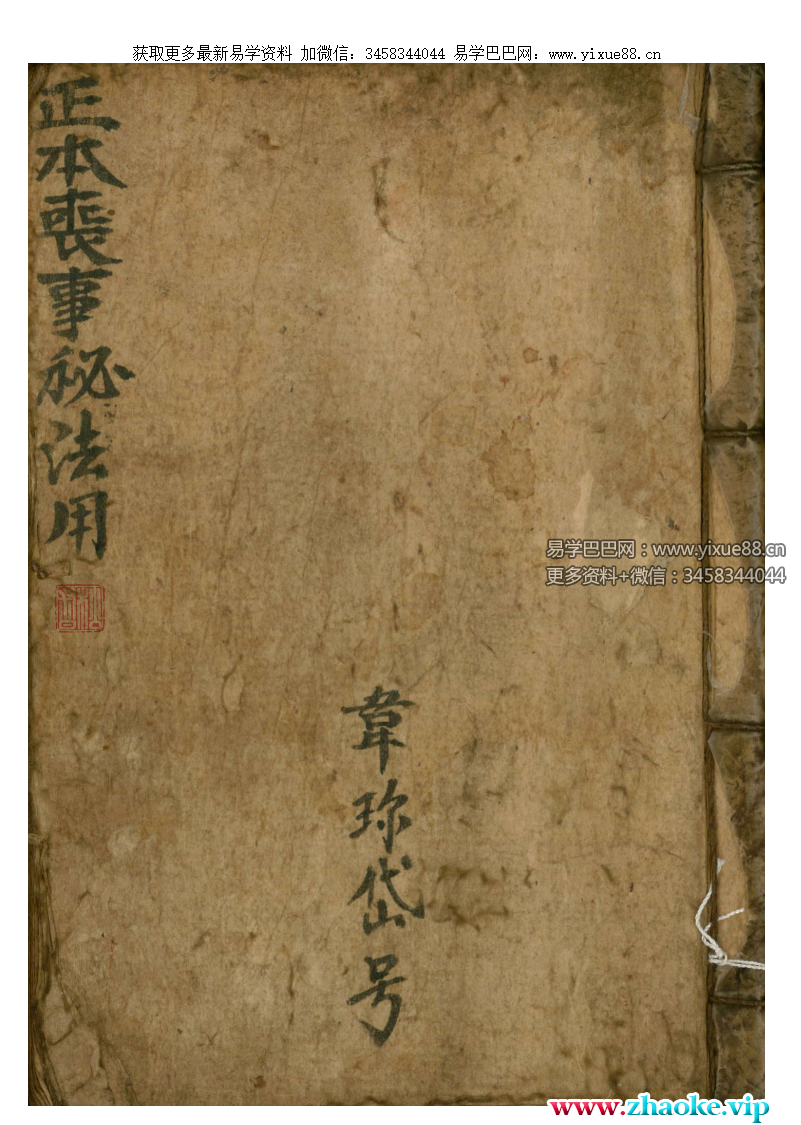 获取更多最新易学资料 加微信：3458344044 易学巴巴网：www.yixue88.cn
正本喪事秘法用
韋珎岱号
易学巴巴网：www.yixue88.cn
更多资料+微信：3458344044
www.zhaoke.vip